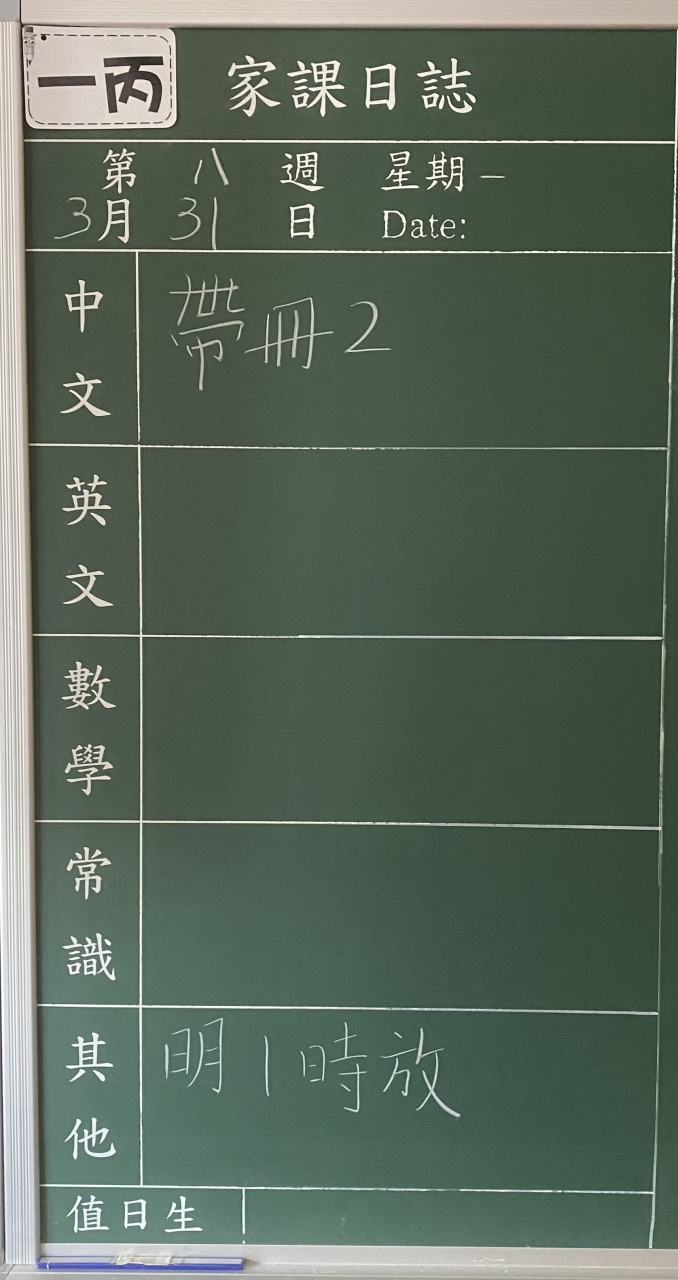 一丙
家課日誌
第 八 週 星期一
3月 31 日 Date:
中文 帶冊2
英文
數學
常識
其他 明1時放
值日生